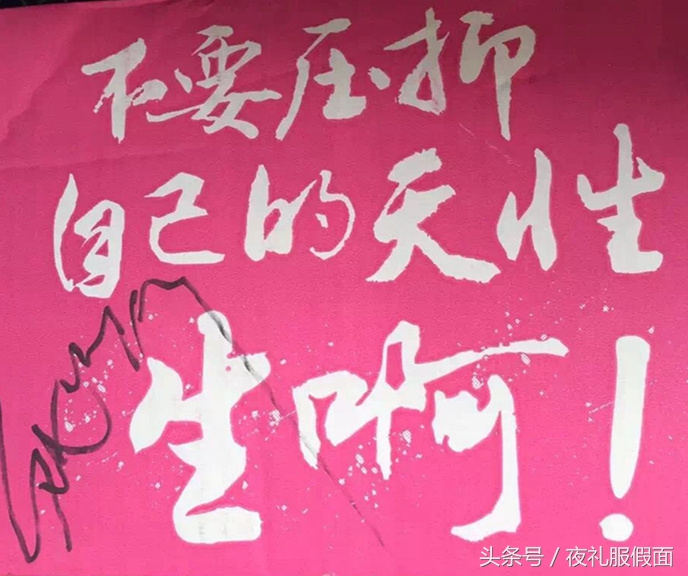 不要压抑
自己的天性
生啊!
头条号 / 夜礼服假面